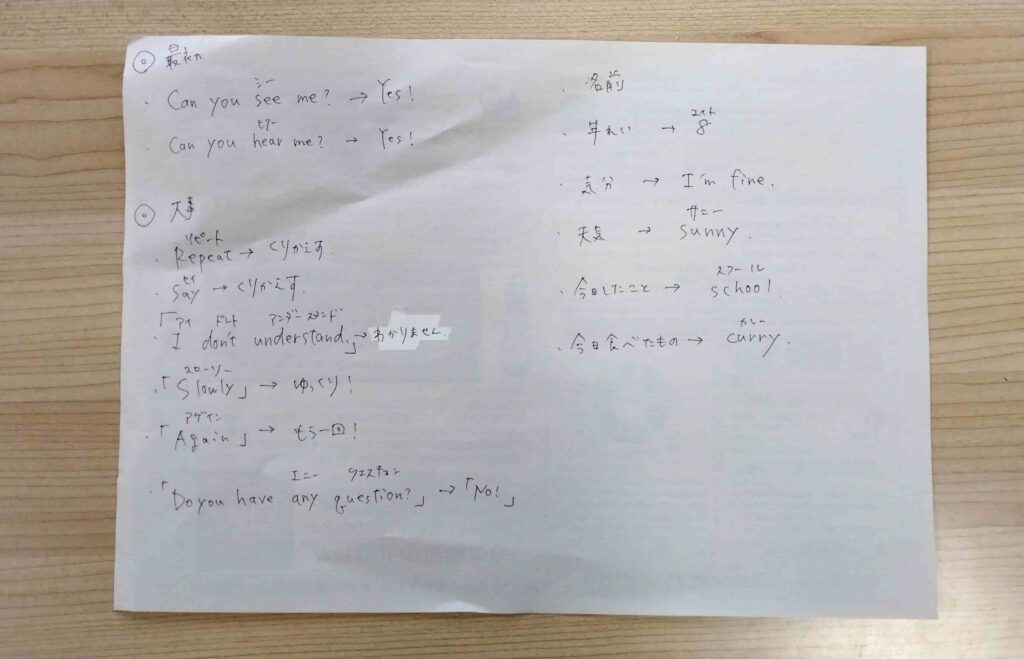 ◎ 最初
シー
・Can you see me? → Yes!
ヒアー
・Can you hear me? → Yes!
◎ 大事
リピート
・Repeat → くりかえす.
セイ
・Say → くりかえす.
アイ ドント アンダースタンド
・「I don't understand.」→ わかりません
スローリー
・「Slowly」→ ゆっくり!
アゲイン
・「Again」→ もう一回!
エニー クエスチョン
・「Do you have any question?」→「No!」
・名前
エイト
・年れい → 8
・気分 → I'm fine.
サニー
・天気 → sunny.
スクール
・今日したこと → school.
カレー
・今日食べたもの → curry.